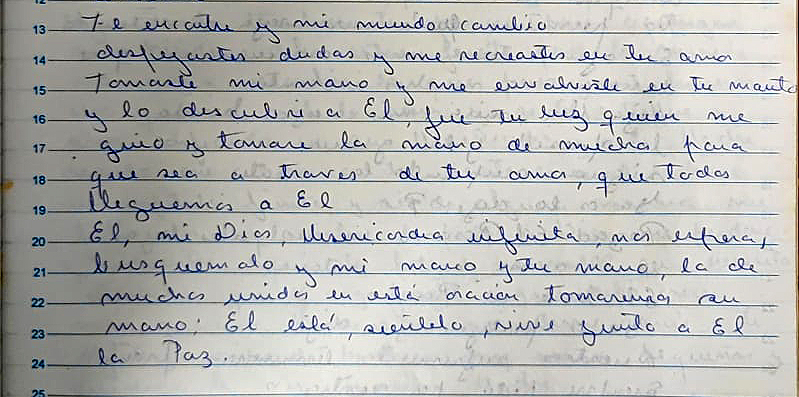 13 Te encontre y mi mundo cambio
14 despejastes dudas y me recreastes en tu amor
15 Tomaste mi mano y me envolviste en tu manto
16 y lo descubri a El, fue tu luz quien me
17 guio y tomare la mano de muchos para
18 que sea a traves de tu amor, que todos
19 lleguemos a El
20 El, mi Dios, Misericordia infinita, nos espera,
21 busquemolo y mi mano y tu mano, la de
22 muchos unidos en está oración tomaremos su
23 mano; El está, sientelo, vive junto a El
24 la Paz.
25